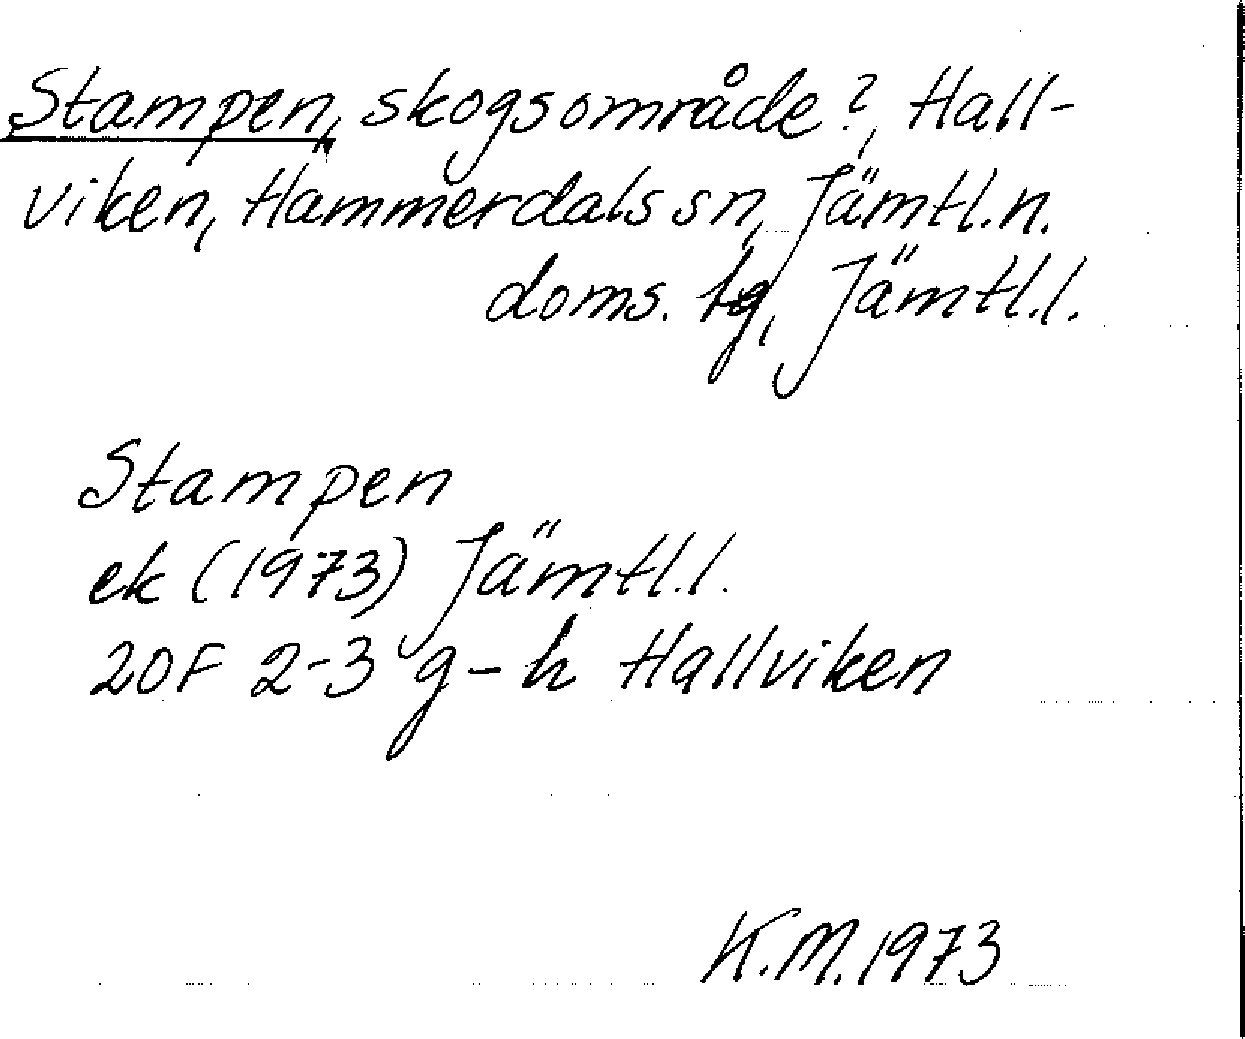 Stampen, skogsområde?, Hall-
viken, Hammerdals sn, Jämtl. n.
doms. tg, Jämtl. l.
Stampen
ek (1973) Jämtl. l.
20F 2-3 g-h Hallviken
K.M. 1973